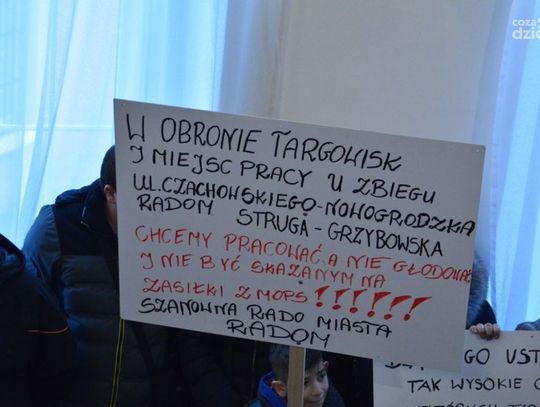 W OBRONIE TARGOWISK
I MIEJSC PRACY U ZBIEGU
UL.CZACHOWSKIEGO-NOWOGRODZKA
RADOM STRUGA-GRZYBOWSKA
CHCEMY PRACOWAĆ, A NIE GŁODOWAĆ
I NIE BYĆ SKAZANYM NA
ZASIŁKI Z MOPS !!!!!!
SZANOWNA RADO MIASTA
RADOM
GO UST
TAK WYSOKIE
coza
dzie